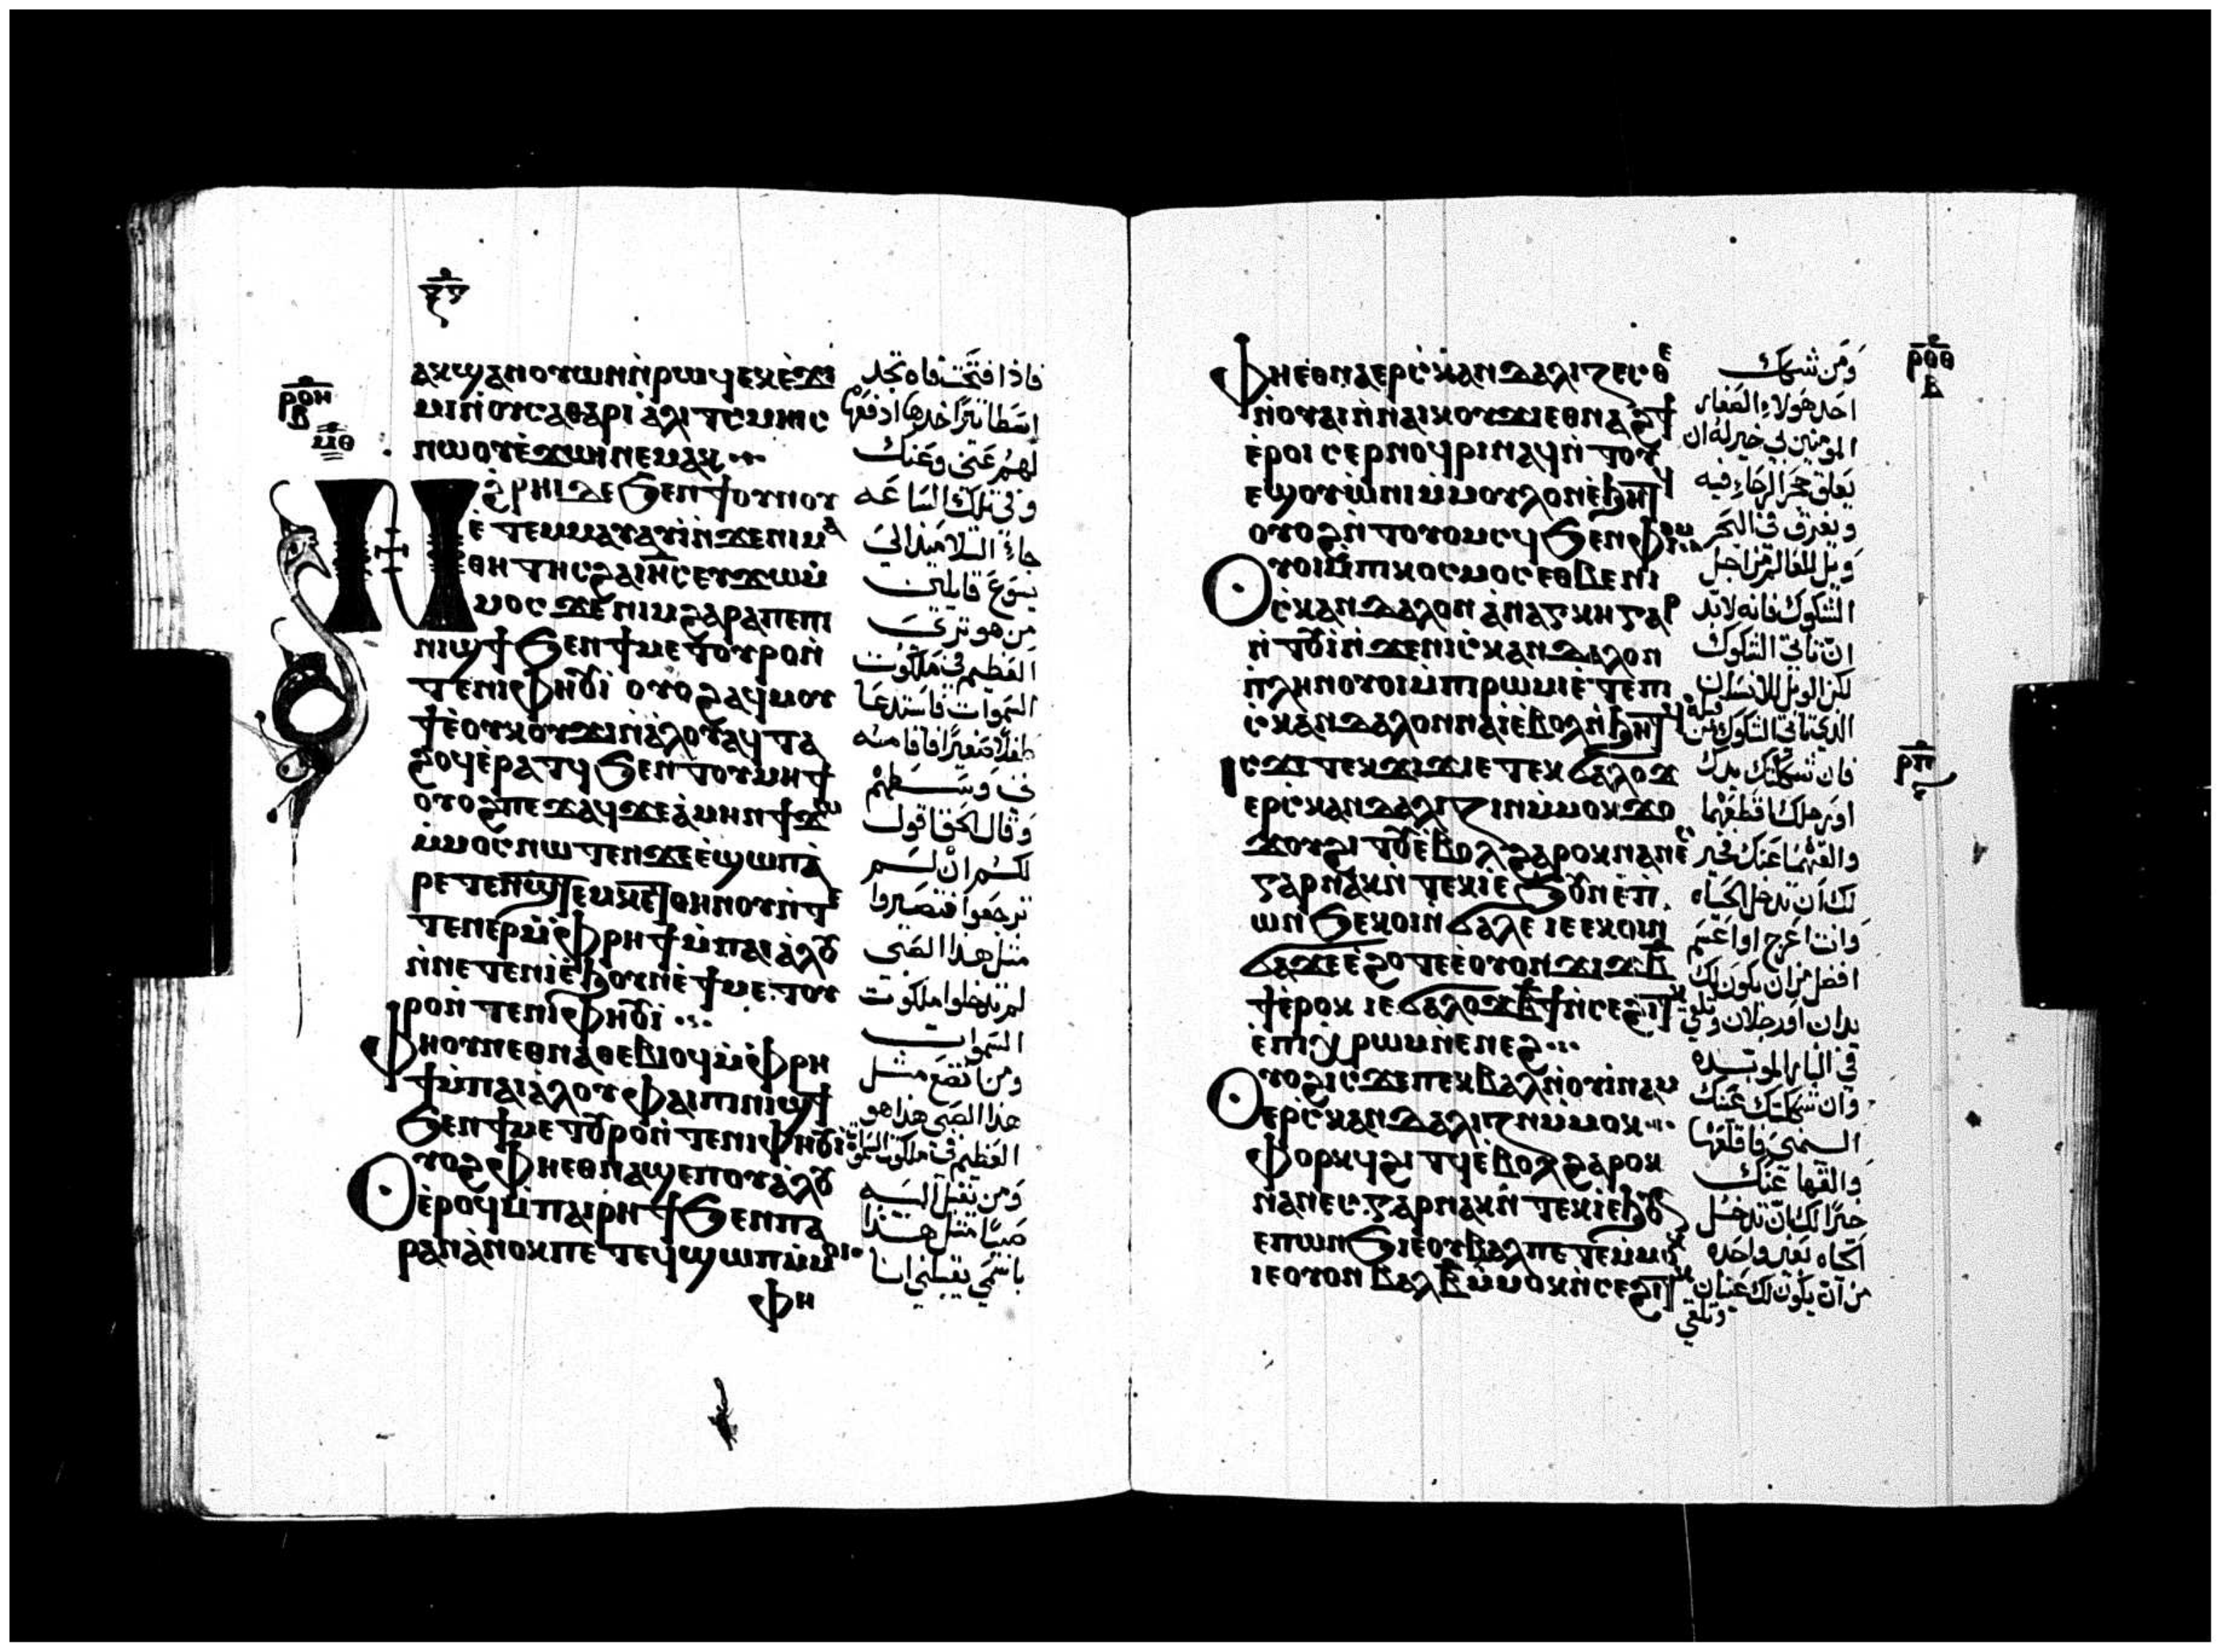 ⲁⲕϣⲁⲛⲟⲩⲱⲛ ⲛ̀ⲣⲱϥ ⲉⲕⲉ̀ϫⲓ
ⲙⲓ ⲛ̀ⲟⲩⲥⲁⲑⲁⲣⲓ ⲁ̀ⲗⲓⲧⲥ ⲙⲏⲓⲥ
ⲛⲱⲟⲩ ⲉ̀ϫⲱⲓ ⲛⲉⲙⲁⲕ
ⲛϩⲣⲏⲓ ⲇⲉ ϧⲉⲛ ϯⲟⲩⲛⲟⲩ
ⲉ̀ⲧⲉⲙⲙⲁⲩ ⲁⲩⲓ̀ ⲛ̀ϫⲉ ⲛⲓⲙⲁ
ⲑⲏⲧⲏⲥ ϩⲁ ⲓⲏ̅ⲥ ⲉⲩϫⲱⲙ̀
ⲙⲟⲥ ϫⲉ ⲛⲓⲙ ϩⲁⲣⲁ ⲡⲉⲡⲓ
ⲛⲓϣϯ ϧⲉⲛ ϯⲙⲉⲧⲟⲩⲣⲟ ⲛ̀
ⲧⲉ ⲛⲓⲫⲏⲟⲩⲓ̀ ⲟⲩⲟϩ ⲁϥⲙⲟⲩ
ϯ ⲉ̀ⲟⲩⲕⲟⲩϫⲓ ⲛ̀ⲁ̀ⲗⲟⲩ ⲁϥⲧⲁ
ϩⲟϥ ⲉ̀ⲣⲁⲧϥ ϧⲉⲛ ⲧⲟⲩⲙⲏϯ
ⲟⲩⲟϩ ⲡⲉϫⲁϥ ϫⲉ ⲁ̀ⲙⲏⲛ ϯϫⲱ
ⲙ̀ⲙⲟⲥ ⲛⲱⲧⲉⲛ ϫⲉ ⲉ̀ϣⲱⲡ ⲁ̀
ⲣⲉⲧⲉⲛϣⲧⲉⲙⲕⲉⲧ ⲑⲏⲛⲟⲩ ⲛ̀ⲧⲉ
ⲧⲉⲛⲉⲣ ⲙ̀ⲫⲣⲏϯ ⲙ̀ⲡⲁⲓⲁ̀ⲗⲟⲩ
ⲛ̀ⲛⲉⲧⲉⲛⲓ̀ ⲉ̀ϧⲟⲩⲛ ⲉ̀ϯⲙⲉⲧⲟⲩ
ⲣⲟ ⲛ̀ⲧⲉ ⲛⲓⲫⲏⲟⲩⲓ̀
ⲫⲏ ⲟⲩⲛ ⲉⲑⲛⲁⲑⲉⲃⲓⲟϥ ⲙ̀ⲫⲣⲏ
ϯ ⲙ̀ⲡⲁⲓⲁ̀ⲗⲟⲩ ⲫⲁⲓ ⲡⲓⲛⲓϣϯ
ϧⲉⲛ ϯⲙⲉⲧⲟⲩⲣⲟ ⲛ̀ⲧⲉ ⲛⲓⲫⲏⲟⲩⲓ̀
ⲟⲩⲟϩ ⲫⲏ ⲉⲑⲛⲁϣⲉⲡ ⲟⲩⲁ̀ⲗⲟⲩ
ⲉ̀ⲣⲟϥ ⲙ̀ⲡⲁⲓⲣⲏϯ ϧⲉⲛ ⲡⲁ
ⲣⲁⲛ ⲁ̀ⲛⲟⲕ ⲡⲉⲧⲉϥϣⲱⲡ ⲙ̀ⲙⲟⲓ
ⲫⲏ
فاذا فتحت فاه تجد
اسطاتيرا خذها ادفعها
لهم عني وعنك
وفي تلك الساعه
جاء التلاميذ الي
يسوع قايلين
من هو تري
العظيم في ملكوت
السموات فاستدعا
طفلا صغيرا فاقامه
في وسطهم
وقال الحق اقول
لكم ان لم
ترجعوا فتصيروا
مثل هذا الصبي
لم تدخلوا ملكوت
السموات
ومن اتضع مثل
هذا الصبي هذا هو
العظيم في ملكوت السموات
ومن يقبل اليه
صبيا مثل هذا
باسمي يقبلني انا
ⲣⲟⲏ
ⲃ
ⲙⲑ
ⲫⲏ ⲉⲑⲛⲁⲉⲣⲥⲕⲁⲛⲇⲁⲗⲓⲍⲉⲥⲑⲉ
ⲛ̀ⲟⲩⲁⲓ ⲛ̀ⲛⲁⲓⲕⲟⲩϫⲓ ⲉⲑⲛⲁϩϯ
ⲉ̀ⲣⲟⲓ ⲥⲉⲣⲛⲟϥⲣⲓ ⲛⲁϥ ⲛ̀ⲧⲟⲩ
ⲉϣ ⲟⲩⲱ̀ⲛⲓ ⲙ̀ⲙⲟⲩⲗⲟⲛ ⲉ̀ϧⲏⲧϥ
ⲟⲩⲟϩ ⲛ̀ⲧⲟⲩⲟⲙⲥϥ ϧⲉⲛ ⲫⲓⲟⲙ
ⲟⲩⲟⲓ ⲙ̀ⲡⲓⲕⲟⲥⲙⲟⲥ ⲉⲑⲃⲉ ⲛⲓ
ⲥⲕⲁⲛⲇⲁⲗⲟⲛ ⲁ̀ⲛⲁⲅⲕⲏ ⲅⲁⲣ
ⲛ̀ⲧⲟⲩⲓ̀ ⲛ̀ϫⲉ ⲛⲓⲥⲕⲁⲛⲇⲁⲗⲟⲛ
ⲡⲗⲏⲛ ⲟⲩⲟⲓ ⲙ̀ⲡⲓⲣⲱⲙⲓ ⲉ̀ⲧⲉ ⲡⲓ
ⲥⲕⲁⲛⲇⲁⲗⲟⲛ ⲛⲁⲓ̀ ⲉ̀ⲃⲟⲗ ⲛ̀ϧⲏⲧϥ
ⲓⲥϫⲉ ⲧⲉⲕϫⲓϫ ⲓⲉ ⲧⲉⲕϭⲁⲗⲟϫ
ⲉⲣⲥⲕⲁⲛⲇⲁⲗⲓⲍⲓⲛ ⲙ̀ⲙⲟⲕ ϫⲟ
ϫⲟⲩ ϩⲓⲧⲟⲩ ⲉ̀ⲃⲟⲗ ϩⲁⲣⲟⲕ ⲛⲁⲛⲉⲥ
ⲅⲁⲣ ⲛⲁⲕ ⲛ̀ⲧⲉⲕⲓ̀ ⲉ̀ϧⲟⲩⲛ ⲉ̀ⲡ
ⲱⲛϧ ⲉⲕⲟⲓ ⲛ̀ϭⲁⲗⲉ ⲓⲉ ⲉⲕⲟⲓ ⲛ̀
ϭⲁϫⲉ ⲉ̀ϩⲟⲧⲉ ⲉ̀ⲟⲩⲟⲛ ϫⲓϫ ⲃ̅
ϯ ⲉ̀ⲣⲟⲕ ⲓⲉ ϭⲁⲗⲟϫ ⲃ̅ϯ ⲛ̀ⲥⲉϩⲓⲧⲕ
ⲉ̀ⲡⲓⲭⲣⲱⲙ ⲛ̀ⲉⲛⲉϩ
ⲟⲩⲟϩ ⲓⲥϫⲉ ⲡⲉⲕⲃⲁⲗ ⲛ̀ⲟⲩⲓ̀ⲛⲁⲙ
ⲉⲣⲥⲕⲁⲛⲇⲁⲗⲓⲍⲓⲛ ⲙ̀ⲙⲟⲕ
ⲫⲟⲣⲕϥ ϩⲓⲧϥ ⲉ̀ⲃⲟⲗ ϩⲁⲣⲟⲕ
ⲛⲁⲛⲉⲥ ⲅⲁⲣ ⲛⲁⲕ ⲛ̀ⲧⲉⲕⲓ̀ ⲉ̀ϧⲟⲩⲛ
ⲉⲡⲱⲛϧ ⲓⲉ ⲟⲩⲃⲁⲗ ⲡⲉⲧⲉⲙⲙⲟⲕ
ⲓⲉ ⲟⲩⲟⲛ ⲃⲁⲗ ⲃ̅ ⲙ̀ⲙⲟⲕ ⲛ̀ⲥⲉϩⲓⲧⲕ
ومن شكك
احد هولاء الصغار
المومنين بي خير له ان
يعلق حجر الرحا فيه
ويغرق في البحر
ويل للعالم من اجل
الشكوك فانه لا بد
ان تاتي الشكوك
لكن الويل للانسان
الذي تاتي الشكوك من قبله
فان شككتك يدك
او رجلك فاقطعهما
والقهما عنك فخير
لك ان تدخل الحياه
وانت اعرج او اعسم
افضل من ان يكون لك
يدان او رجلان وتلقي
في النار الموبده
وان شككتك عينك
اليمني فاقلعها
والقها عنك
خيرا لك ان تدخل
الحياه بعين واحده
من ان يكون لك عينان
وتلقي
ⲣⲟⲑ
ⲃ
ⲣⲡ